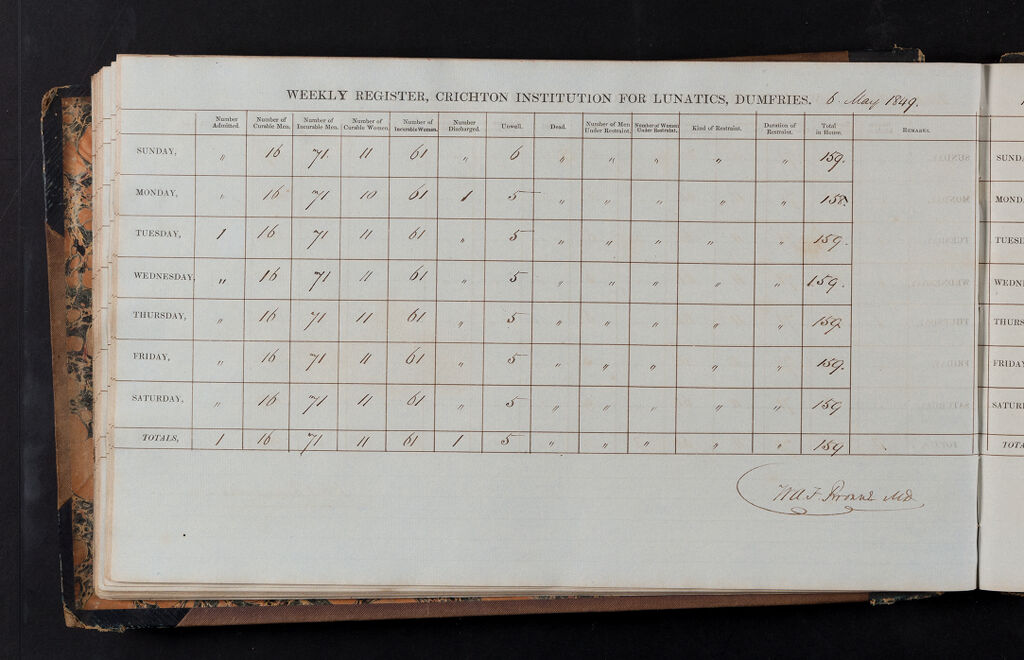 WEEKLY REGISTER, CRICHTON INSTITUTION FOR LUNATICS, DUMFRIES. 6 May 1849.
Number Admitted. Number of Curable Men. Number of Incurable Men. Number of Curable Women. Number of Incurable Women. Number Discharged. Unwell. Dead. Number of Men Under Restraint. Number of Women Under Restraint. Kind of Restraint. Duration of Restraint. Total in House. Remarks.
SUNDAY, " 16 71 11 61 " 6 " " " " " 159.
MONDAY, " 16 71 10 61 1 5 " " " " " 158.
TUESDAY, 1 16 71 11 61 " 5 " " " " " 159.
WEDNESDAY, " 16 71 11 61 " 5 " " " " " 159.
THURSDAY, " 16 71 11 61 " 5 " " " " " 159
FRIDAY, " 16 71 11 61 " 5 " " " " " 159.
SATURDAY, " 16 71 11 61 " 5 " " " " " 159
TOTALS, 1 16 71 11 61 1 5 " " " " " 159
W A F Browne MD
SUNDA
MONDA
TUESD
WEDN
THURS
FRIDAY
SATUR
TOTA